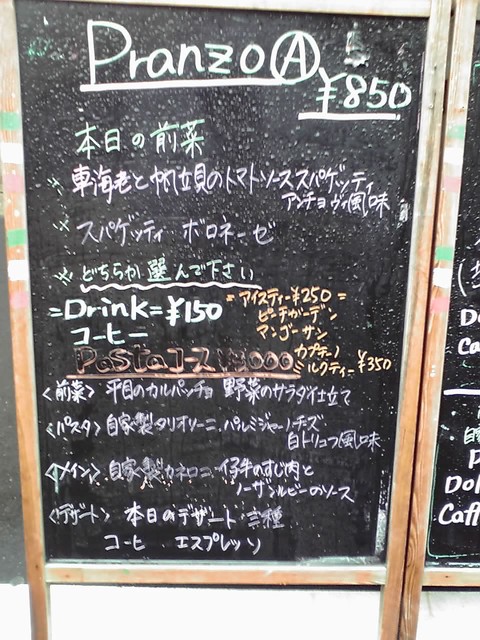 Pranzo Ⓐ
¥850
本日の前菜
※ 車海老と帆立貝のトマトソーススパゲッティ
アンチョヴィ風味
※ スパゲッティ ボロネーゼ
※ どちらか選んで下さい
=Drink= ¥150
コーヒー
= アイスティー ¥250 =
ピーチガーデン
マンゴーサン
カプチーノ
ミルクティー ¥350
Pastaコース ¥3000
〈前菜〉 平目のカルパッチョ 野菜のサラダ仕立て
〈パスタ〉 自家製タリオリーニ、パルミジャーノチーズ
白トリュフ風味
〈メイン〉 自家製カネロニ 仔牛のすじ肉と
ノーザンルビーのソース
〈デザート〉 本日のデザート 三種
コーヒ エスプレッソ
Do
Ca
Dol
Caff